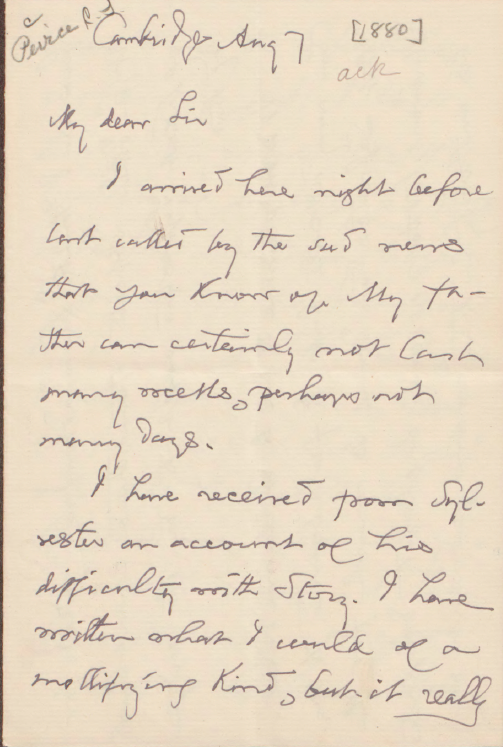 Peirce C. S.
Cambridge Aug 7
[1880]
ack
My dear Sir
I arrived here night before
last called by the sad news
that you know of. My fa-
ther can certainly not last
many weeks, perhaps not
many days.
I have received from Syl-
vester an account of his
difficulty with Story. I have
written what I could of a
mollifying kind, but it really